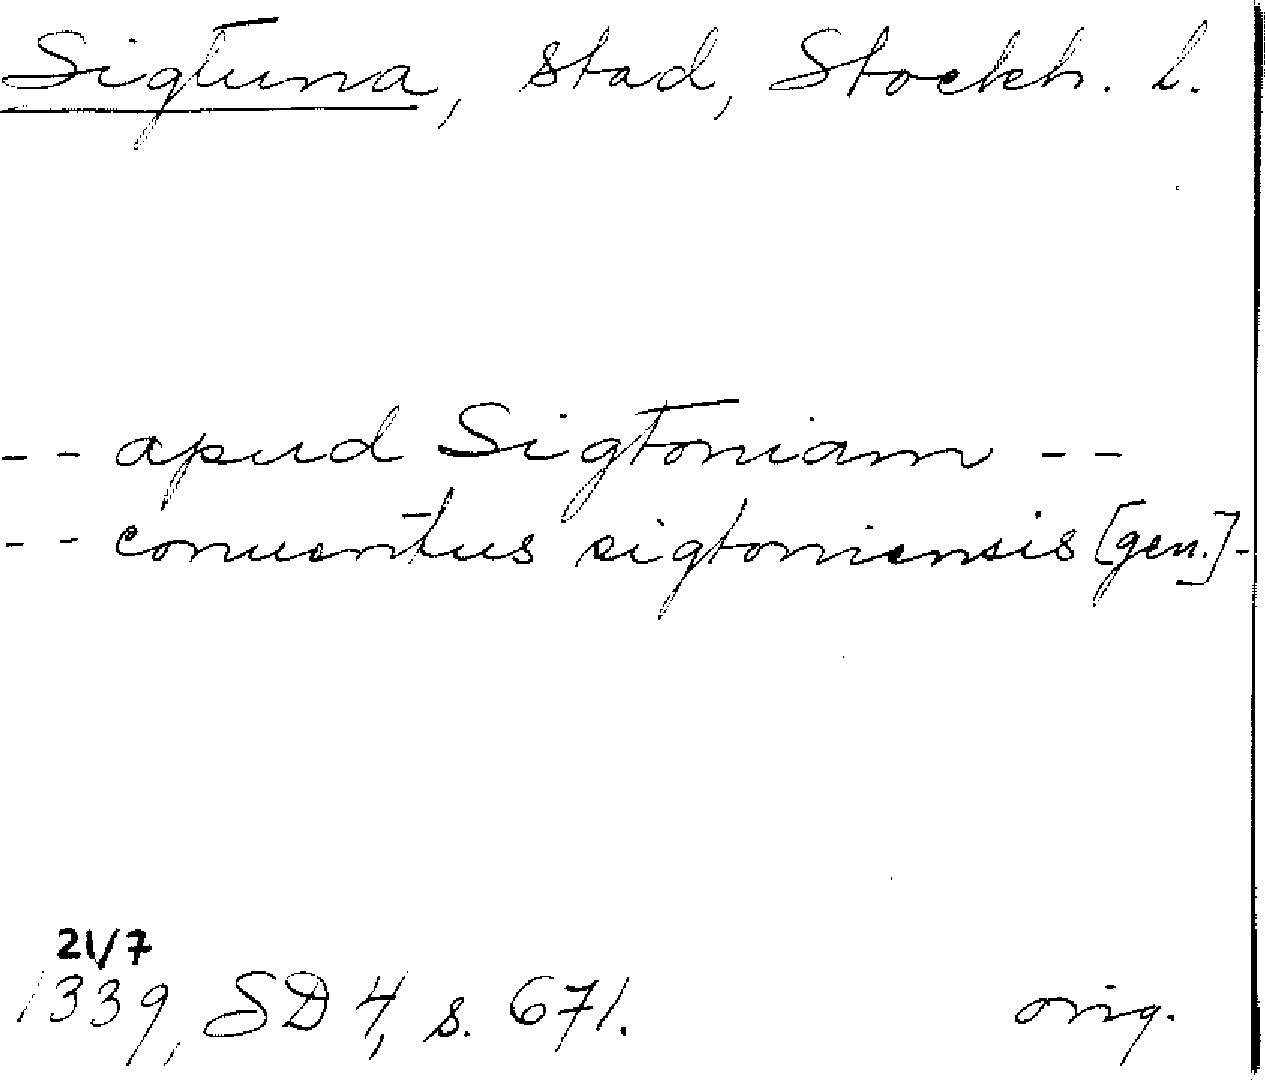 Sigtuna, stad, Stockh. l.
-- apud Sigtoniam --
-- conuentus sigtoniensis [gen.]-
21/7
1339, SD 4, s. 671. orig.